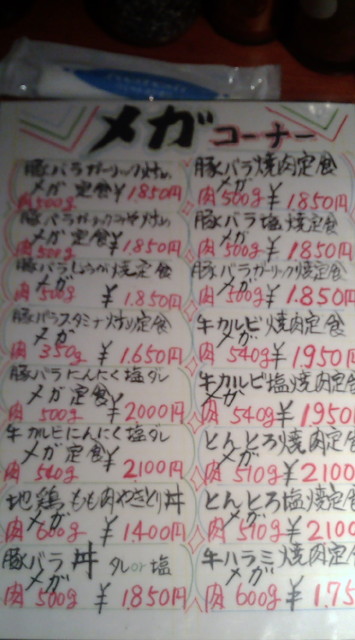 メガ コーナー
豚バラガーリック炒め
メガ 定食 ¥1.850円
肉500g
豚バラガーリックみそ炒め
メガ 定食 ¥1.850円
肉500g
豚バラしょうが焼定食
メガ
肉500g ¥1.850円
豚バラスタミナ炒め定食
メガ
肉350g ¥1.650円
豚バラにんにく塩ダレ
メガ 定食
肉500g ¥2000円
牛カルビにんにく塩ダレ
メガ 定食
肉540g ¥2100円
地鶏もも肉やきとり丼
メガ
肉600g ¥1400円
豚バラ丼 タレor塩
メガ
肉500g ¥1.850円
豚バラ焼肉定食
メガ
肉500g ¥1.850円
豚バラ塩焼定食
メガ
肉500g ¥1850円
豚バラガーリック焼定食
メガ
肉500g ¥1.850円
牛カルビ焼肉定食
メガ
肉540g ¥1950円
牛カルビ塩焼肉定食
メガ
肉540g ¥1950
とんとろ焼肉定食
メガ
肉510g ¥2100
とんとろ塩焼定食
メガ
肉510g ¥2100
牛ハラミ焼肉定食
メガ
肉600g ¥1.75